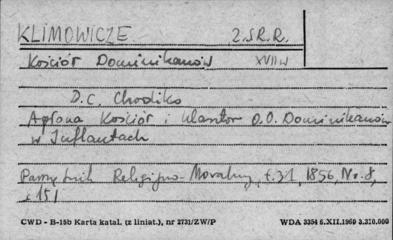 KLIMOWICZE Z.S.R.R.
Kościół Dominikanów XVII w
D.C. Chodźko
Kościół i klasztor O.O. Dominikanów
w Inflantach
Pamiętnik Religijno-Moralny, t.31, 1856, No.8,
s 151
CWD - B-15b Karta katal. (z liniat.), nr 2731/ZW/P WDA 3354 6.XII.1969 3.310.000